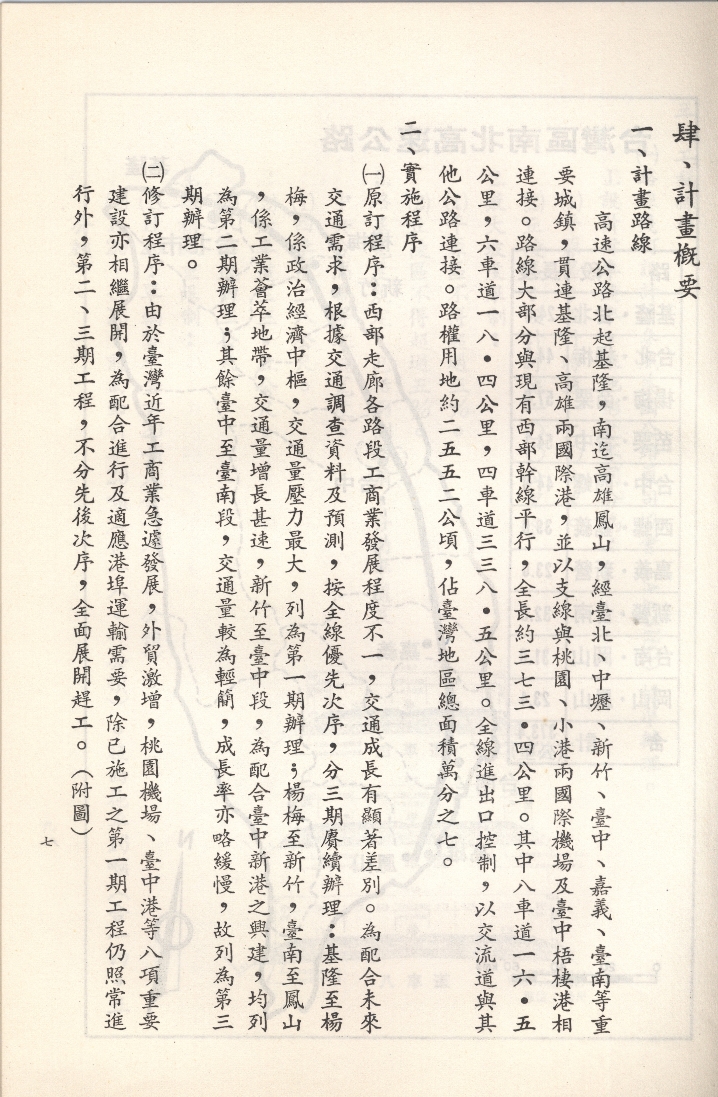 肆、計畫概要
一、計畫路線
高速公路北起基隆，南迄高雄鳳山，經臺北、中壢、新竹、臺中、嘉義、臺南等重
要城鎮，貫連基隆、高雄兩國際港，並以支線與桃園、小港兩國際機場及臺中梧棲港相
連接。路線大部分與現有西部幹線平行，全長約三七三•四公里。其中八車道一六•五
公里，六車道一八•四公里，四車道三三八•五公里。全線進出口控制，以交流道與其
他公路連接。路權用地約二五五二公頃，佔臺灣地區總面積萬分之七。
二、實施程序
㈠原訂程序：西部走廊各路段工商業發展程度不一，交通成長有顯著差別。為配合未來
交通需求，根據交通調查資料及預測，按全線優先次序，分三期賡續辦理：基隆至楊
梅，係政治經濟中樞，交通量壓力最大，列為第一期辦理；楊梅至新竹，臺南至鳳山
，係工業薈萃地帶，交通量增長甚速，新竹至臺中段，為配合臺中新港之興建，均列
為第二期辦理；其餘臺中至臺南段，交通量較為輕簡，成長率亦略緩慢，故列為第三
期辦理。
㈡修訂程序：由於臺灣近年工商業急遽發展，外貿激增，桃園機場、臺中港等八項重要
建設亦相繼展開，為配合進行及適應港埠運輸需要，除已施工之第一期工程仍照常進
行外，第二、三期工程，不分先後次序，全面展開趕工。（附圖）
七